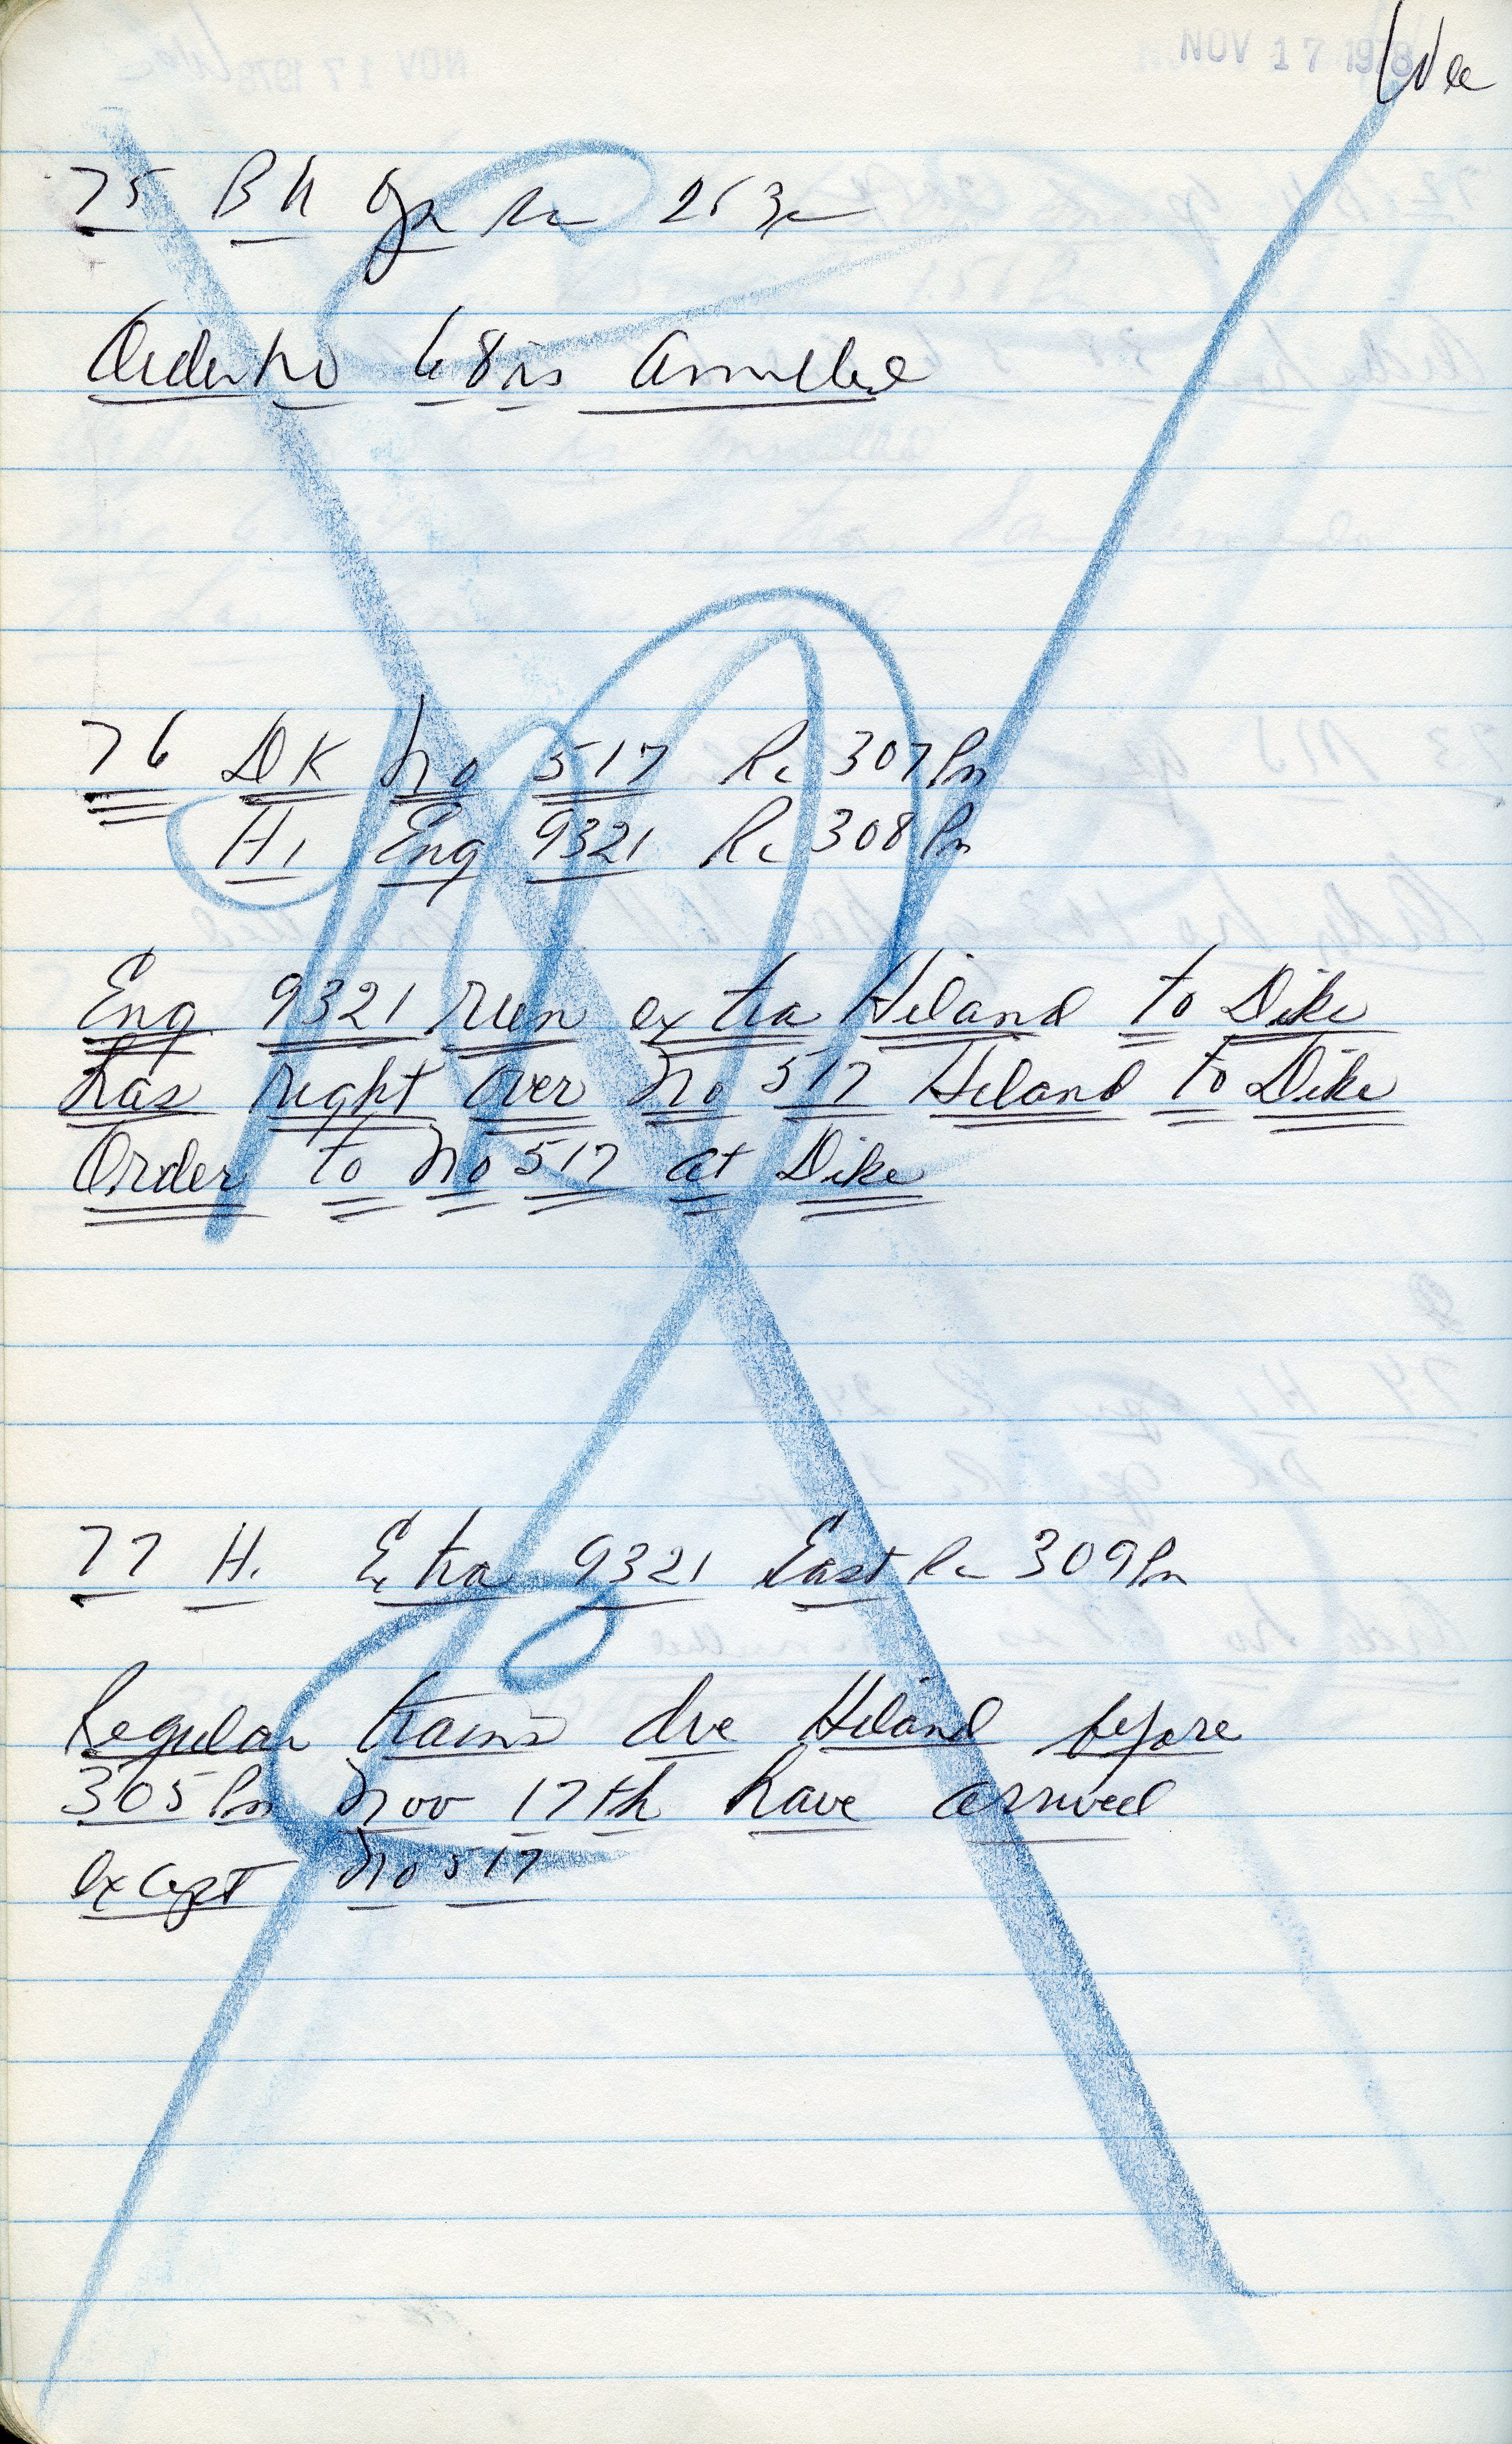 NOV 17 1978
75 BK Opr Rc 253
Order No 68 is Annulled
76 DK No 517 Rc 307 Pm
Hi Eng 9321 Rc 308 Pm
Eng 9321 run extra Hiland to Dike
has right over No 517 Hiland to Dike
Order to No 517 at Dike
77 H. Extra 9321 East Rc 309 Pm
Regular trains due Hiland before
305 Pm Nov 17th have arrived
except No 517